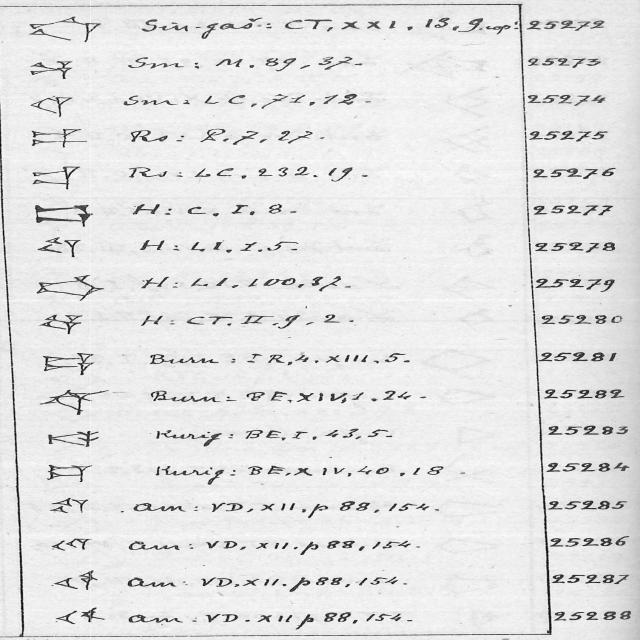 Sin-gaš: CT, XXI, 13, 9. cop! 25272
Sm: M. 89, 37. 25273
Sm: LC, 71, 12. 25274
Rs: 2, 27. 25275
Rs: LC, 232. 19. 25276
H: C, I, 8. 25277
H: LI, 1, 5. 25278
H: LI, 100, 37. 25279
H: CT, II, 9, 2. 25280
Burn: IR, 4, XIII, 5. 25281
Burn: BE, XIV, 1, 24. 25282
Kurig: BE, I, 43, 5. 25283
Kurig: BE, XIV, 40, 18. 25284
Am: VD, XII, p 88, 154. 25285
Am: VD, XII, p 88, 154. 25286
Am: VD, XII, p 88, 154. 25287
Am: VD. XII p 88, 154. 25288